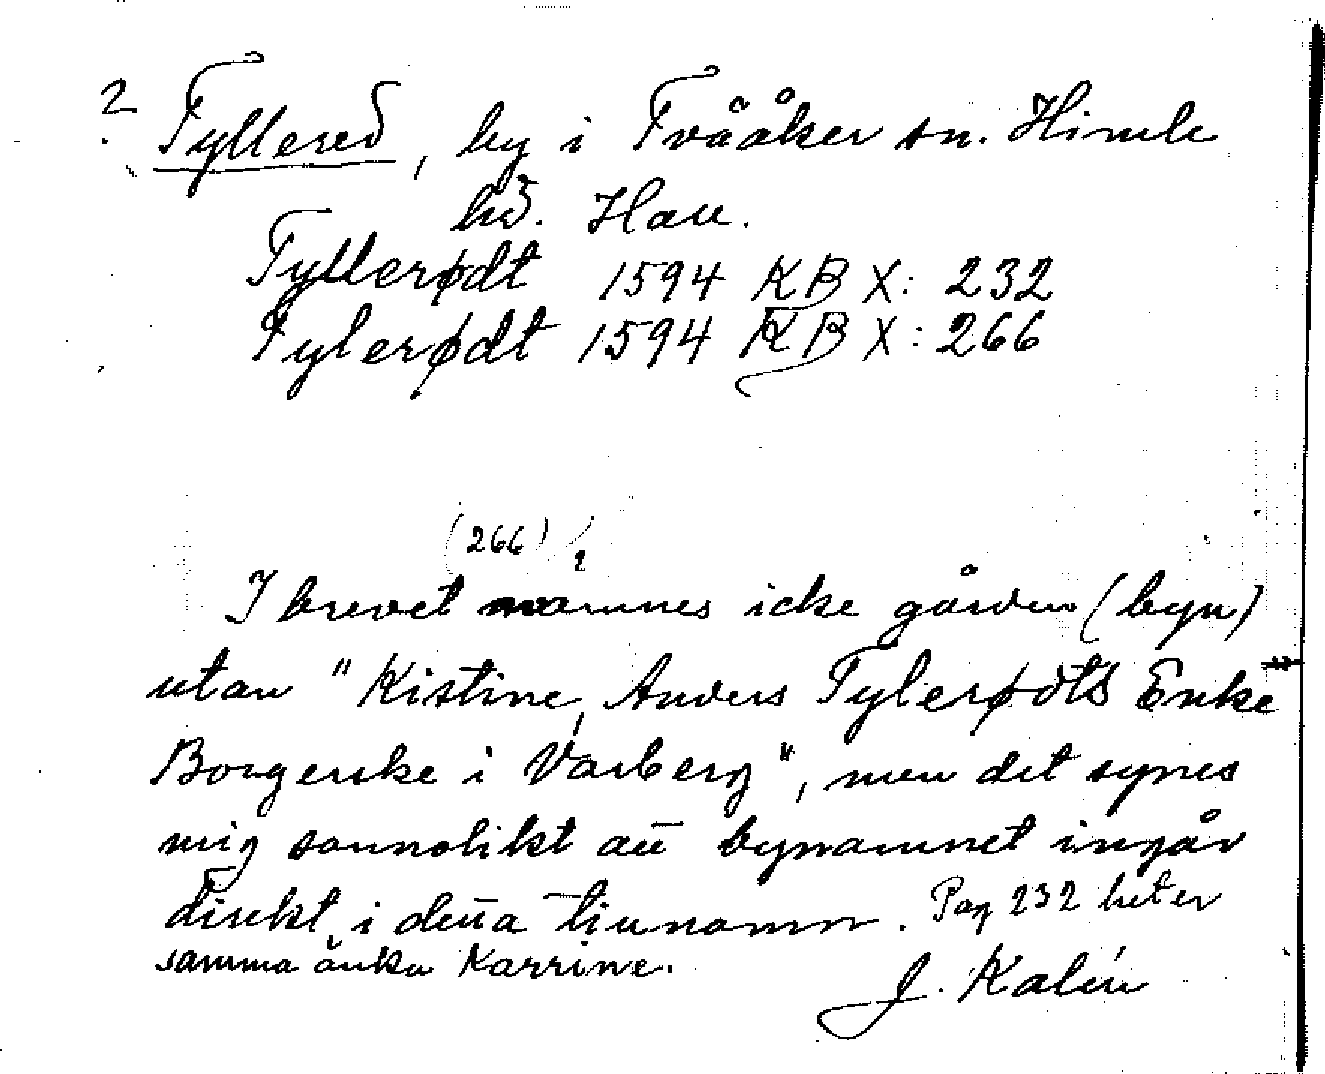 ? Fyllered, by i Tvååker sn. Himle
hd. Hall.
Fyllerødt 1594 KB X: 232
Fylerødt 1594 KB X: 266
(266) ?
I brevet namnes icke gården (byn)
utan "Kistine, Anders Fylerødts Enke
Borgerske i Varberg", men det synes
mig sannolikt att bynamnet ingår
direkt i detta tillnamn. Pag 232 heter
samma änka Karrine.
J. Kalén